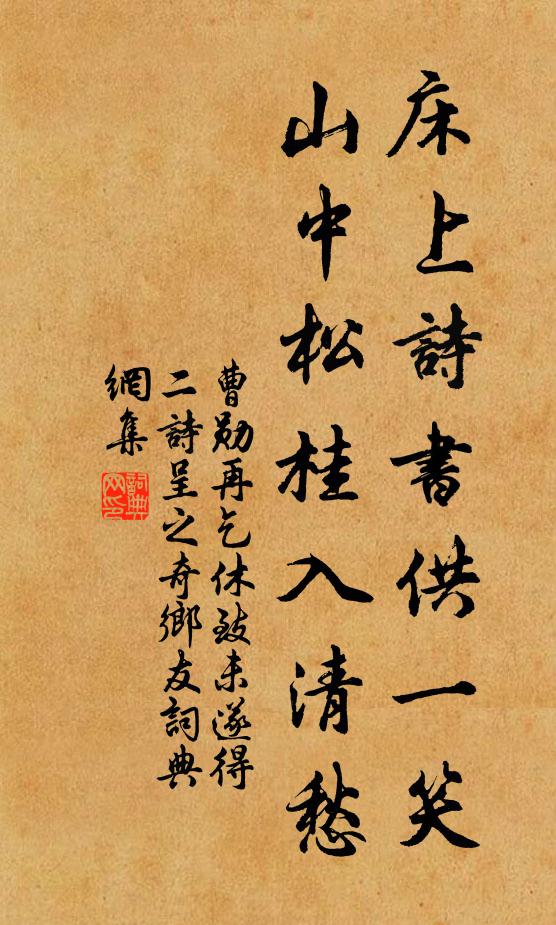 床上詩書供一笑
山中松桂入清愁
曹勛再乞休致未遂得
二詩呈之奇鄉友詞典
網集
詞典網印